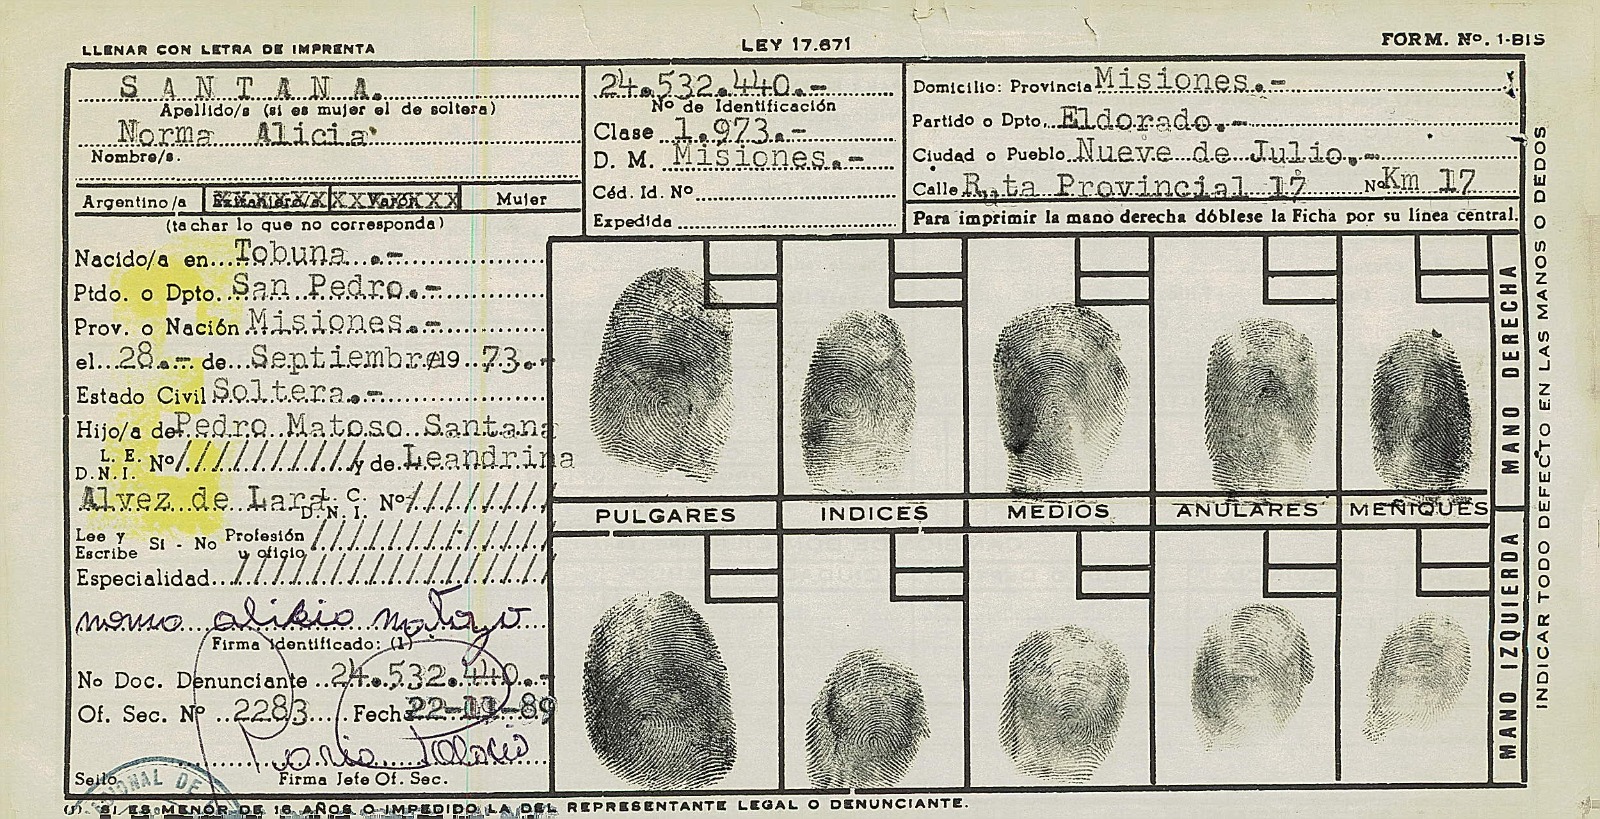 LLENAR CON LETRA DE IMPRENTA
LEY 17.671
FORM. Nº. 1-BIS
SANTANA.
Apellido/s (si es mujer el de soltera)
Norma Alicia
Nombre/s.
Argentino/a Extranjero/a Varón Mujer
(tachar lo que no corresponda)
24.532.440.-
Nº de Identificación
Clase 1.973.-
D. M. Misiones.-
Céd. Id. Nº
Expedida
Domicilio: Provincia Misiones.-
Partido o Dpto. Eldorado.-
Ciudad o Pueblo Nueve de Julio.-
Calle R.ta Provincial 17 Nº Km 17
Para imprimir la mano derecha dóblese la Ficha por su línea central.
Nacido/a en Tobuna .-
Ptdo. o Dpto. San Pedro.-
Prov. o Nación Misiones.-
el 28.- de Septiembre 19 73.-
Estado Civil Soltera.-
Hijo/a de Pedro Matoso Santana
L. E. D.N.I. Nº/////////// y de Leandrina
Alvez de Lara L. C. D.N.I. Nº////////
Lee y Escribe Si - No Profesión u oficio //////////////
Especialidad ///////////////////
Firma identificado: (1)
No Doc. Denunciante 24.532.440.-
Of. Sec. Nº 2283 Fecha 22-11-89
Sello Firma Jefe Of. Sec.
IONAL DE
(1) SI ES MENOR DE 16 AÑOS O IMPEDIDO LA DEL REPRESENTANTE LEGAL O DENUNCIANTE.
PULGARES INDICES MEDIOS ANULARES MEÑIQUES
MANO DERECHA
MANO IZQUIERDA
INDICAR TODO DEFECTO EN LAS MANOS O DEDOS